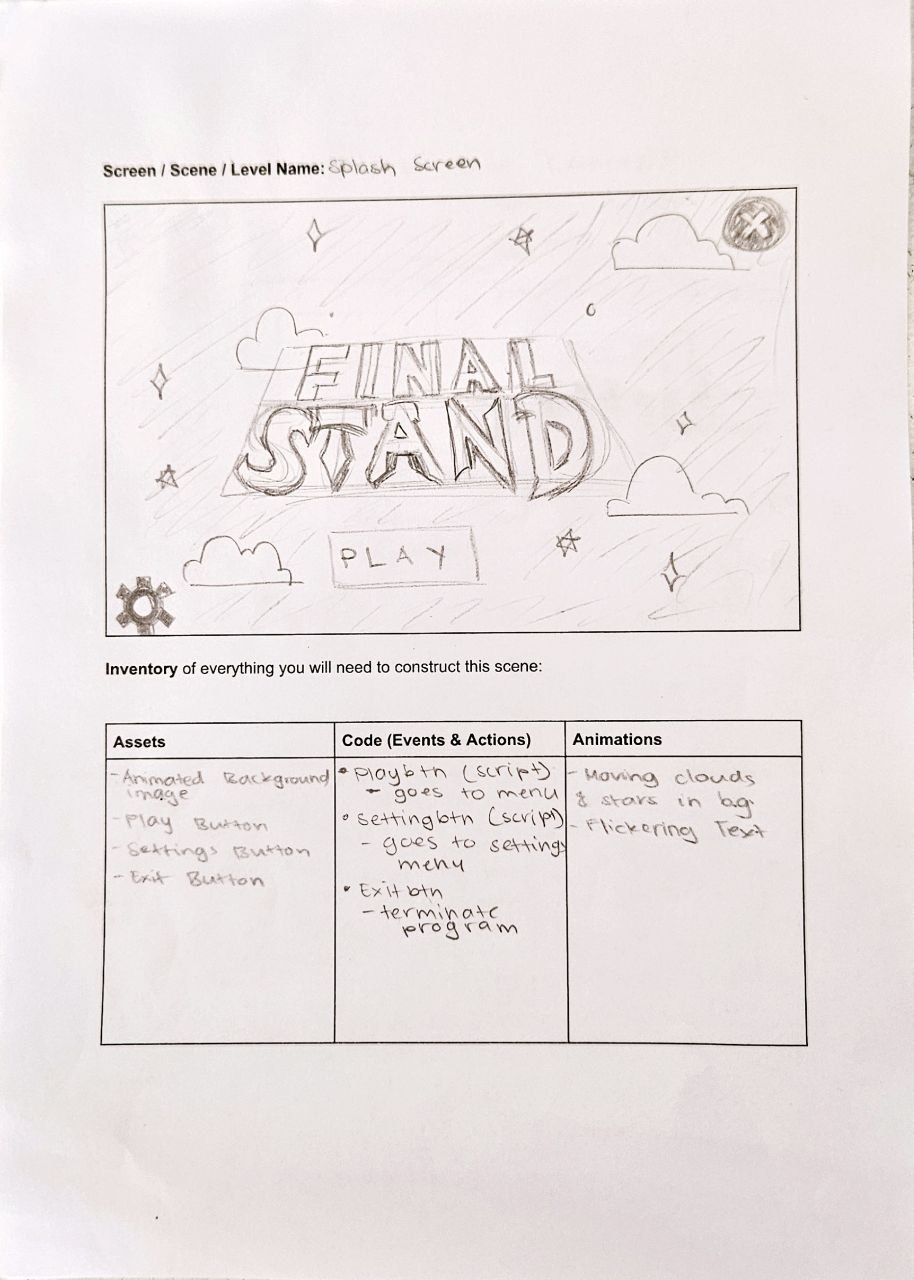 Screen / Scene / Level Name: Splash Screen
FINAL
STAND
PLAY
Inventory of everything you will need to construct this scene:
Assets
- Animated Background
image
- Play Button
- Settings Button
- Exit Button
Code (Events & Actions)
• playbtn (script)
- goes to menu
• settingbtn (script)
- goes to settings
menu
• Exit btn
- terminate
program
Animations
- Moving clouds
& stars in bg.
- Flickering Text